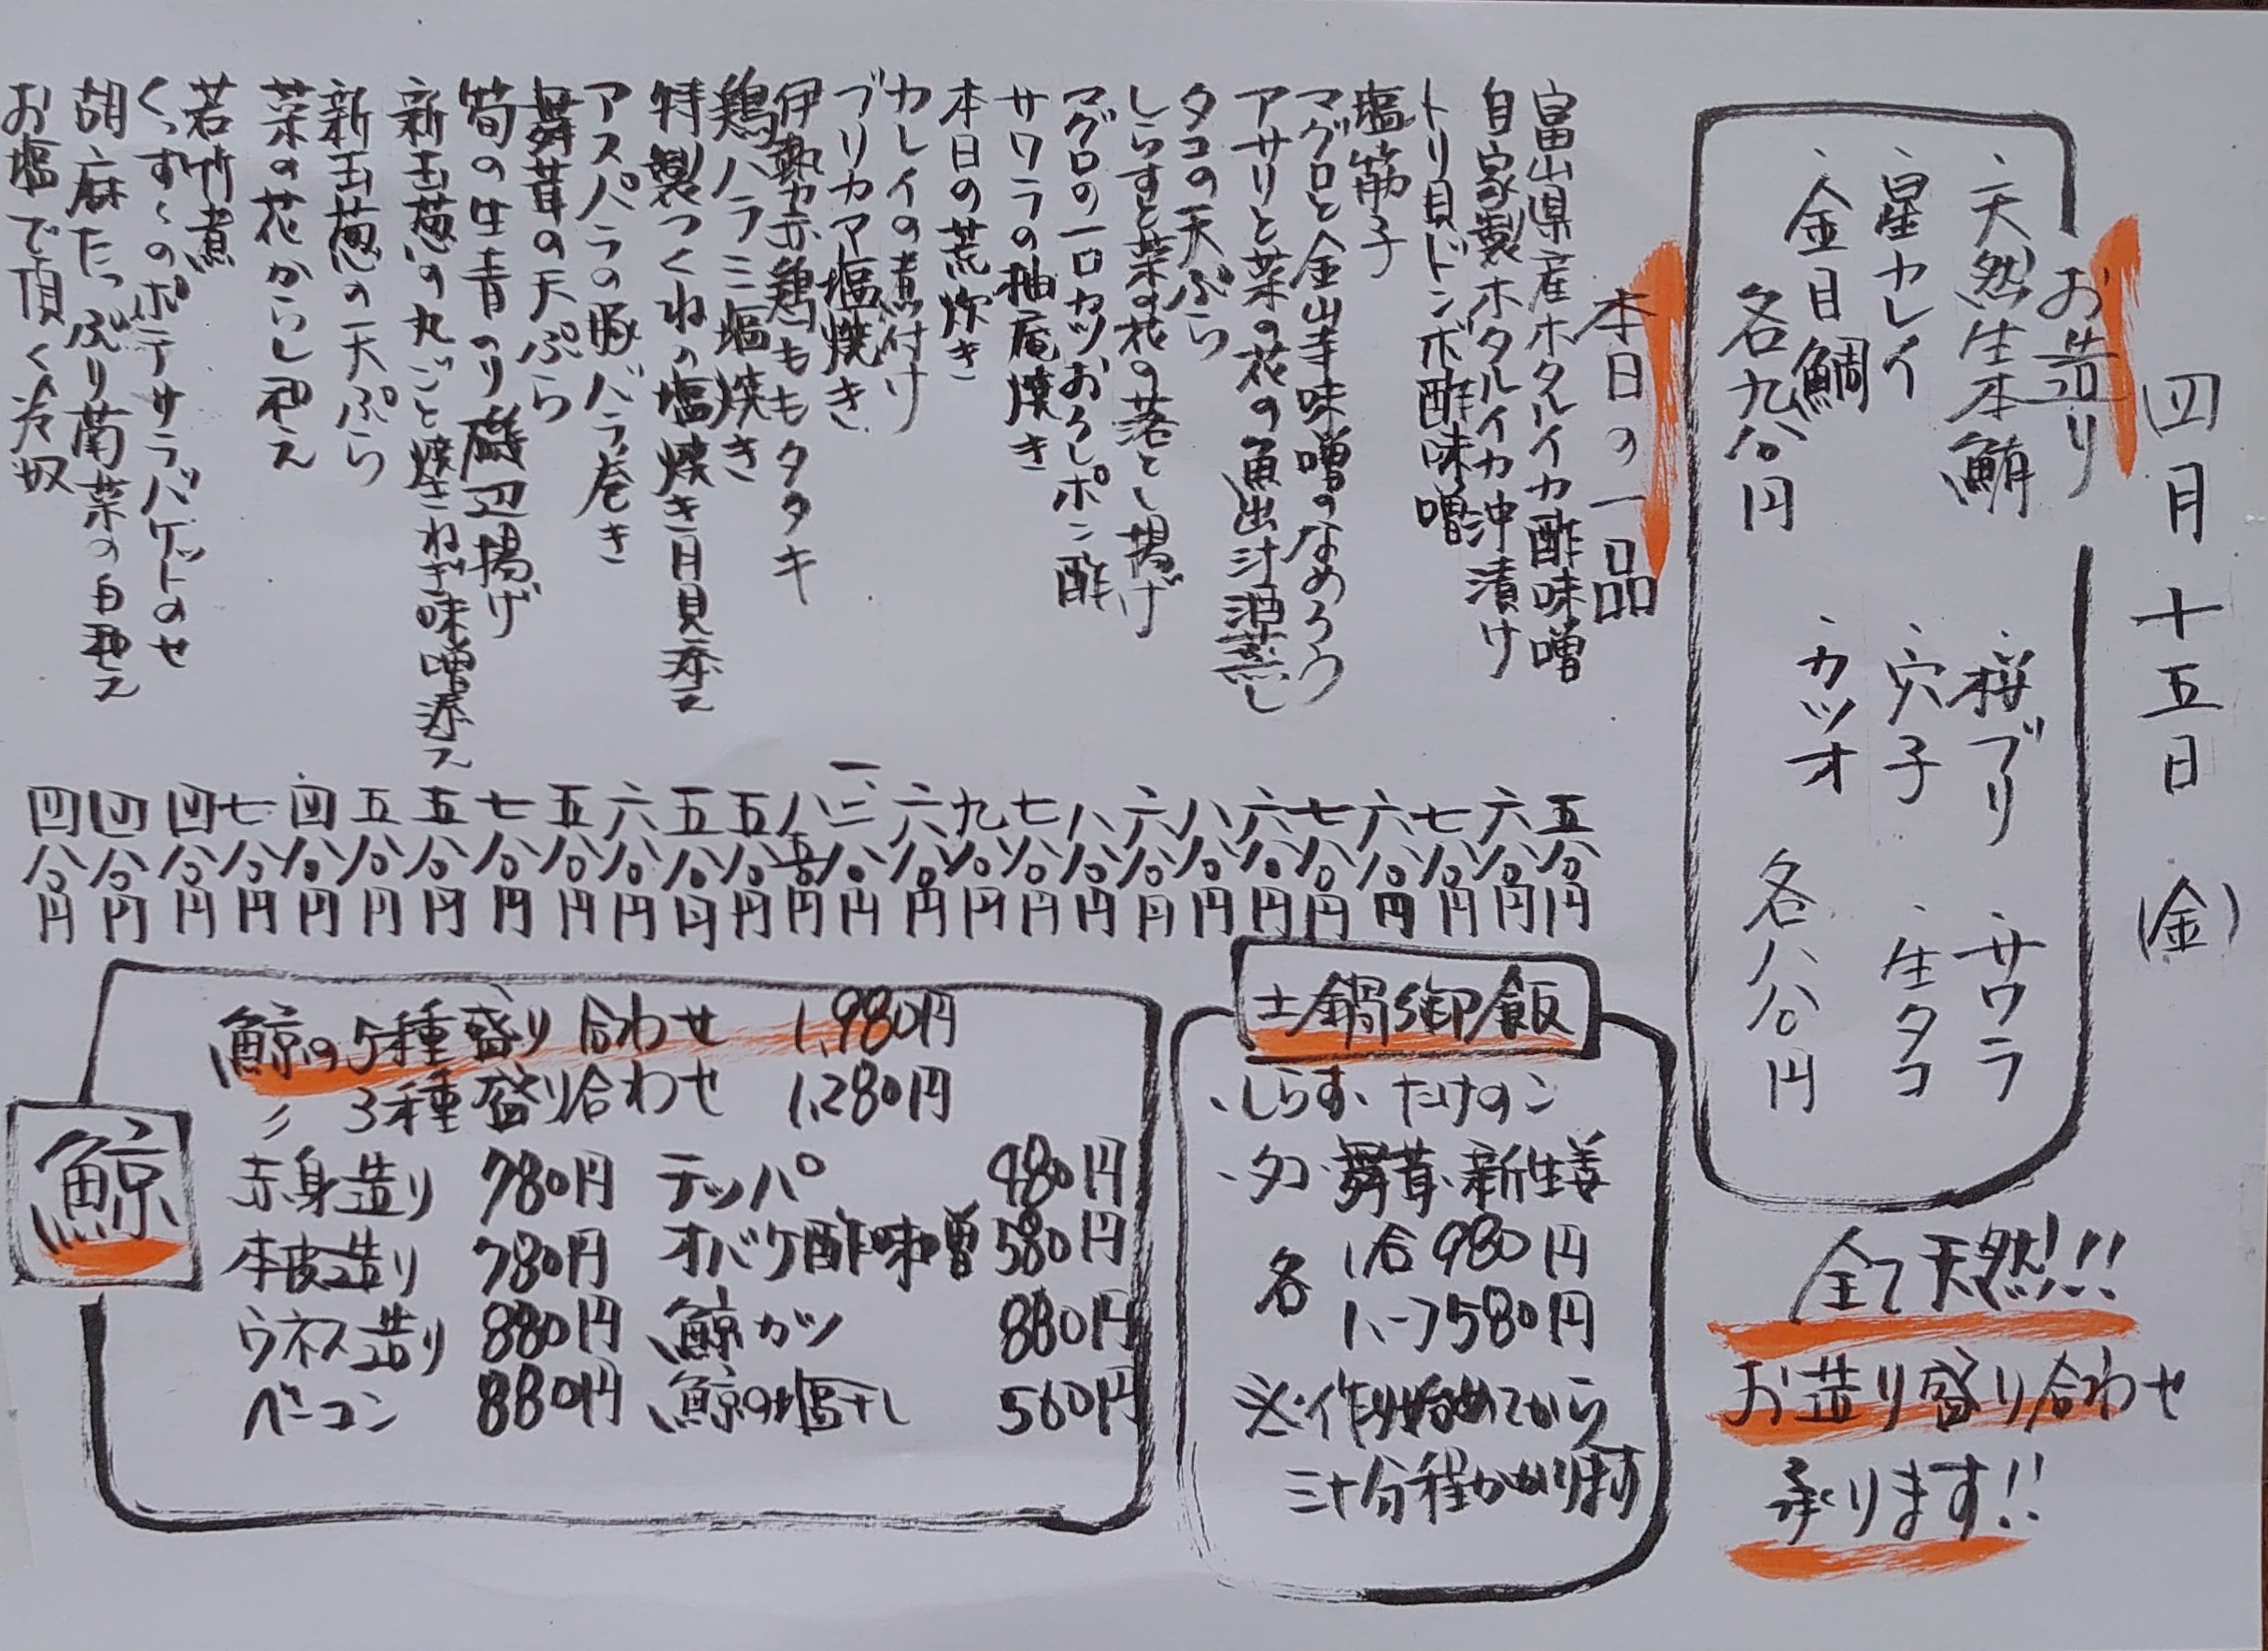 四月十五日(金)
お造り
・天然生本鮪 ・桜ブリ ・サワラ
・星カレイ ・穴子 ・生タコ
・金目鯛 ・カツオ
各九八〇円 各八八〇円
全て天然!!!
お造り盛り合わせ
承ります!!
本日の一品
富山県産ホタルイカ酢味噌 五八〇円
自家製ホタルイカ沖漬け 六八〇円
トリ貝ドンボ酢味噌 七八〇円
塩筋子 六八〇円
マグロと金山寺味噌のなめろう 七八〇円
アサリと菜の花の魚出汁酒蒸し 六八〇円
タコの天ぷら 八八〇円
しらすと菜の花の落とし揚げ 六八〇円
マグロの一口カツおろしポン酢 八八〇円
サワラの柚庵焼き 七八〇円
本日の荒炊き 九八〇円
カレイの煮付け 六八〇円
ブリカマ塩焼き 一、三八〇円
伊勢赤鶏ももタタキ 八五〇円
鶏ハラミ塩焼き 五八〇円
特製つくねの塩焼き月見添え 五八〇円
アスパラの豚バラ巻き 六八〇円
舞茸の天ぷら 五八〇円
筍の生青のり磯辺揚げ 七八〇円
新玉葱の丸ごと焼きねぎ味噌添え 五八〇円
新玉葱の天ぷら 五八〇円
菜の花からし和え 四八〇円
若竹煮 七八〇円
のポテサラバケットのせ 四八〇円
胡麻たっぷり菊菜の白和え 四八〇円
お塩で頂く冷奴 四八〇円
土鍋御飯
・しらす・たけのこ
・タコ・舞茸・新生姜
各 1合 980円
1.5 〃 1,580円
※作り始めてから
三十分程かかります
鯨
鯨の5種盛り合わせ 1,980円
〃 3種盛り合わせ 1,280円
赤身造り 780円 テッパ 480円
本皮造り 780円 オバケ酢味噌 580円
ウネス造り 880円 鯨カツ 880円
ベーコン 880円 鯨の塩干し 560円